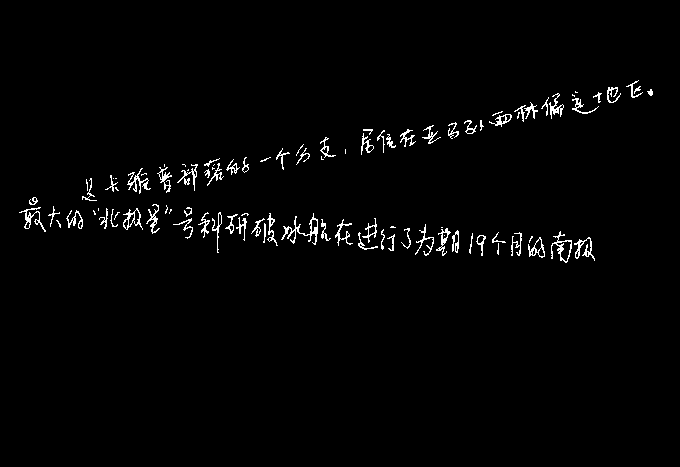 是卡雅普部落的一个分支，居住在亚马孙雨林偏远地区。
最大的“北极星”号科研破冰船在进行了为期19个月的南极